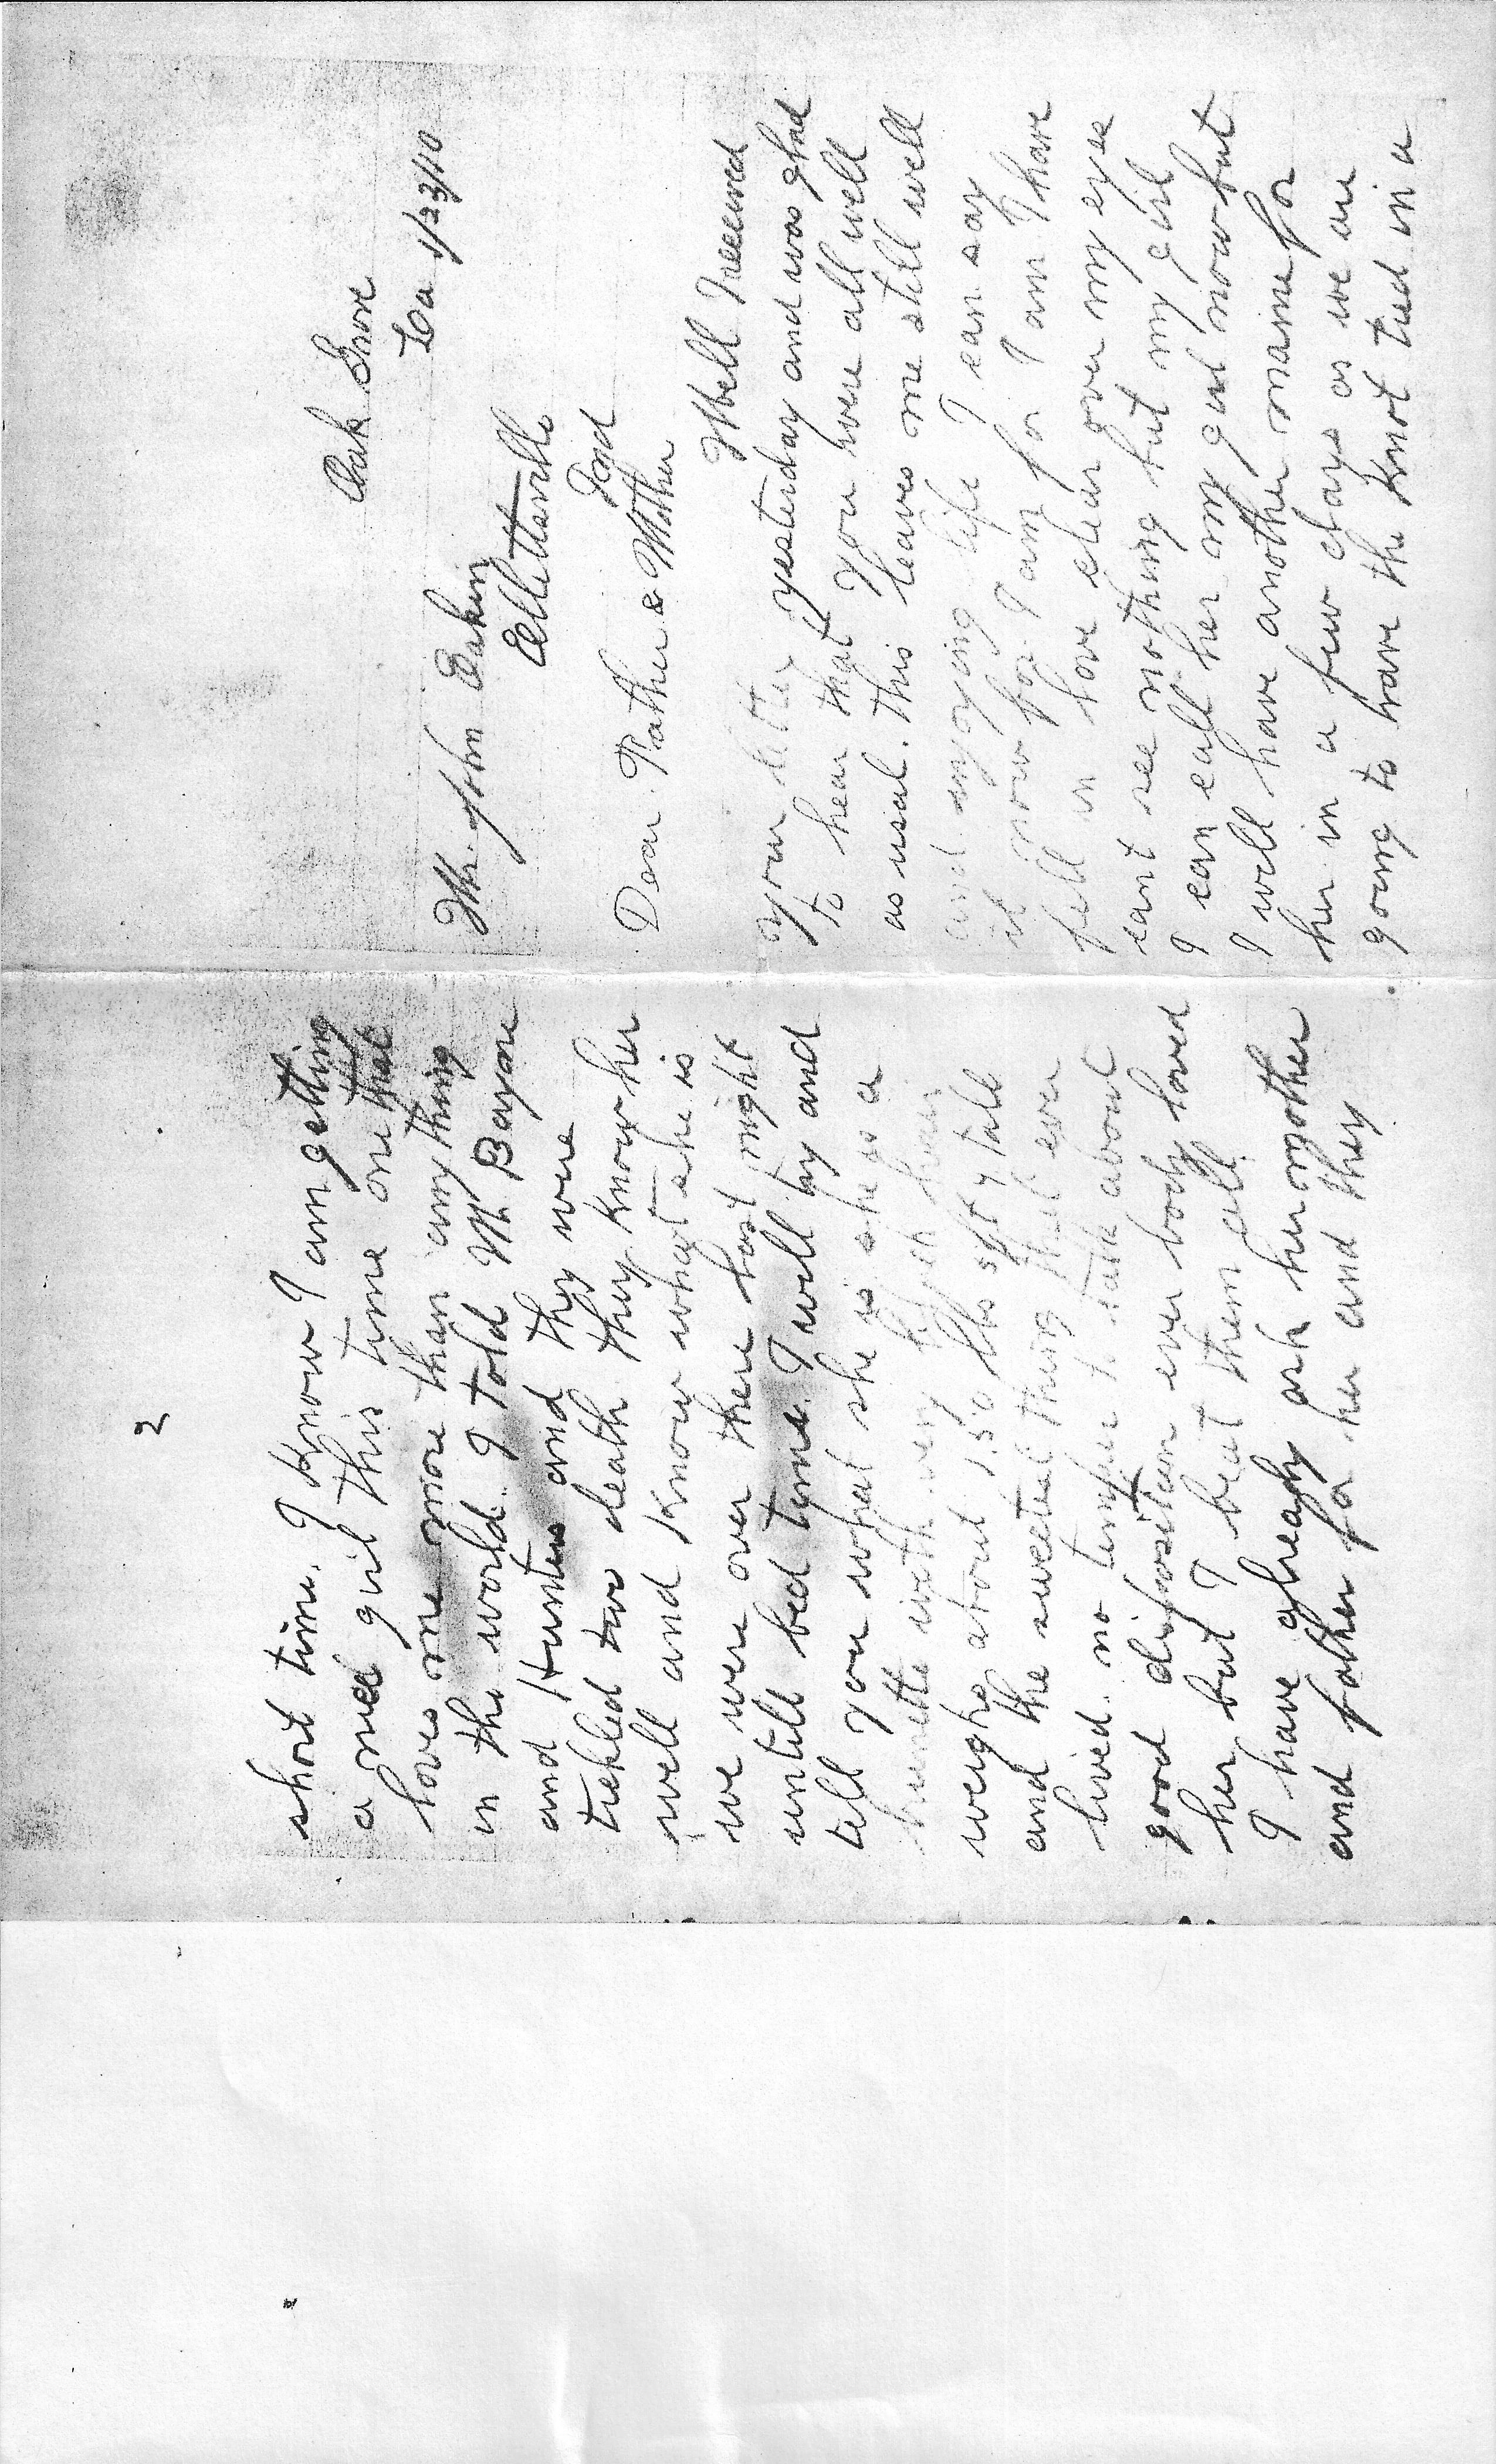 Oak Grove
La 1/23/10
Mr. John Eakin
Ellettsville
Ind
Dear Father & Mother
Well I received
your letter yesterday and was glad
to hear that you were all well
as usial. this leaves me still well
and injoying life I can say
it now for I am for I am I have
fell in love clear over my eyes
cant see nothing but my girl
I can call her my girl now but
I will have another name for
her in a few days as we are
going to have the Knot tied in a
2
short time. I Know I am getting
a good girl this time one that
loves me more than any thing
in the world. I told M Bayne
and Hunters and they were
tickled two death they Know her
well and Know what she is
we were over there last night
untill bed time. I will try and
tell you what she is she is a
brunette with very black hair
weighs about 150 lbs 5 ft 4 tall
and the sweetest thing that ever
lived. no temper to talk about
good disposition ever body loved
her but I beat them all.
I have already ask her mother
and father for her and they